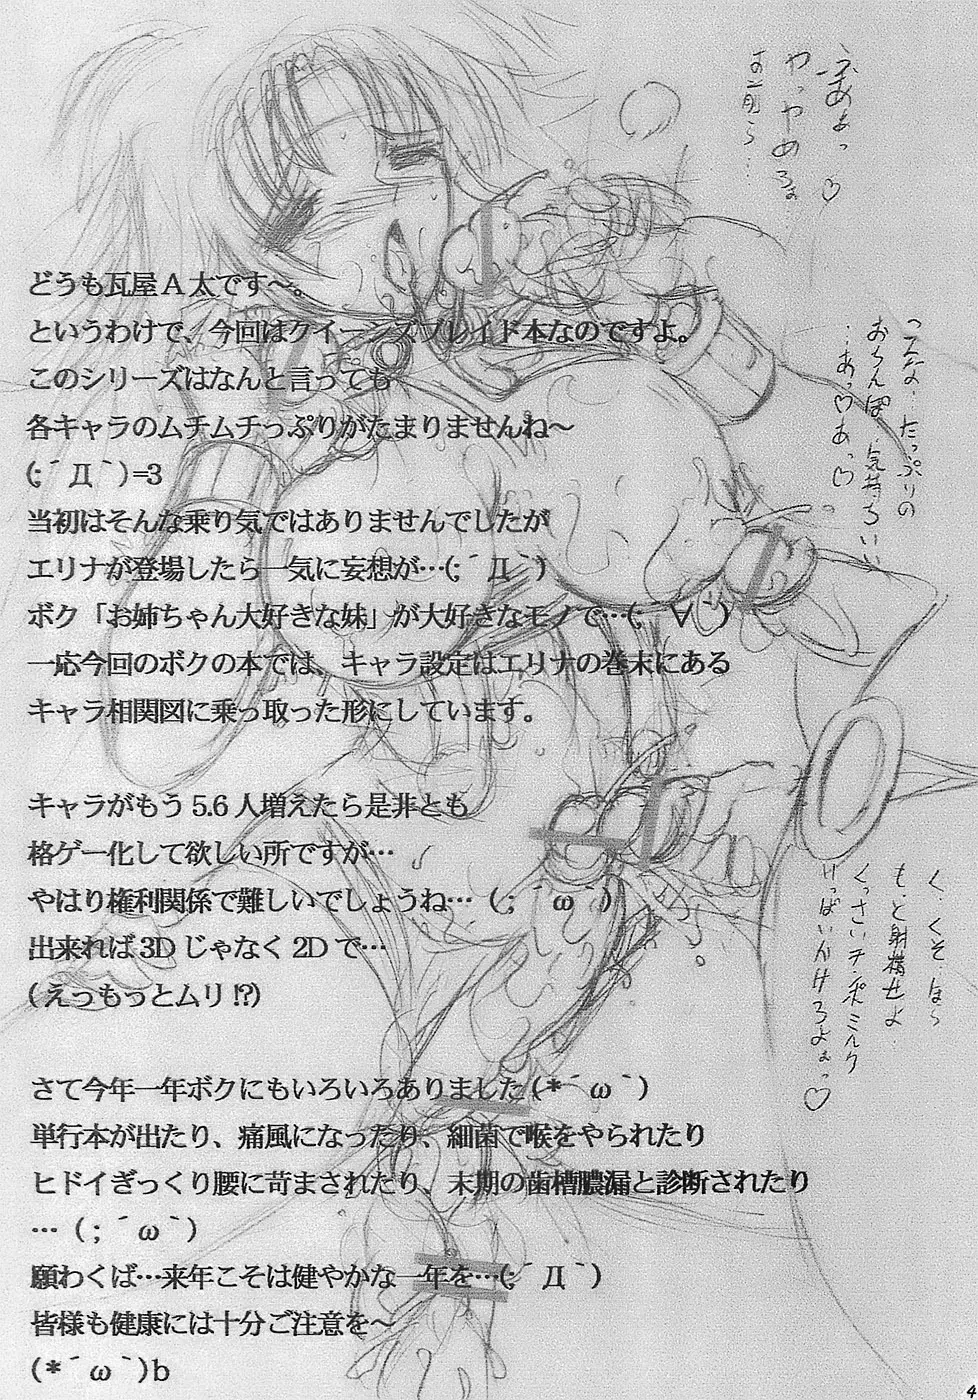 どうも瓦屋A太です～。
というわけで、今回はクイーンズブレイド本なのですよ。
このシリーズはなんと言っても
各キャラのムチムチっぷりがたまりませんね～
(;´Д｀)=3
当初はそんな乗り気ではありませんでしたが
エリナが登場したら一気に妄想が…(;´Д｀)
ボク「お姉ちゃん大好きな妹」が大好きなモノで…(;´∀｀)
一応今回のボクの本では、キャラ設定はエリナの巻末にある
キャラ相関図に乗っ取った形にしています。
キャラがもう5.6人増えたら是非とも
格ゲー化して欲しい所ですが…
やはり権利関係で難しいでしょうね…（；´ω｀）
出来れば3Dじゃなく2Dで…
(えっもっとムリ!?)
さて今年一年ボクにもいろいろありました(*´ω｀)
単行本が出たり、痛風になったり、細菌で喉をやられたり
ヒドイぎっくり腰に苛まされたり、末期の歯槽膿漏と診断されたり
…（；´ω｀）
願わくば…来年こそは健やかな一年を…(;´Д｀)
皆様も健康には十分ご注意を～
(*´ω｀)b
ふあぁっ♡
やっやめろぉ
お前ら…
こんな、たっぷりの
おちんぽ、気持ちいい
…あっ♡あっ♡
く、くそ、ほら
もっと射精せよ
くっさいチンポミルク
いっぱいかけろよぉっ♡
4